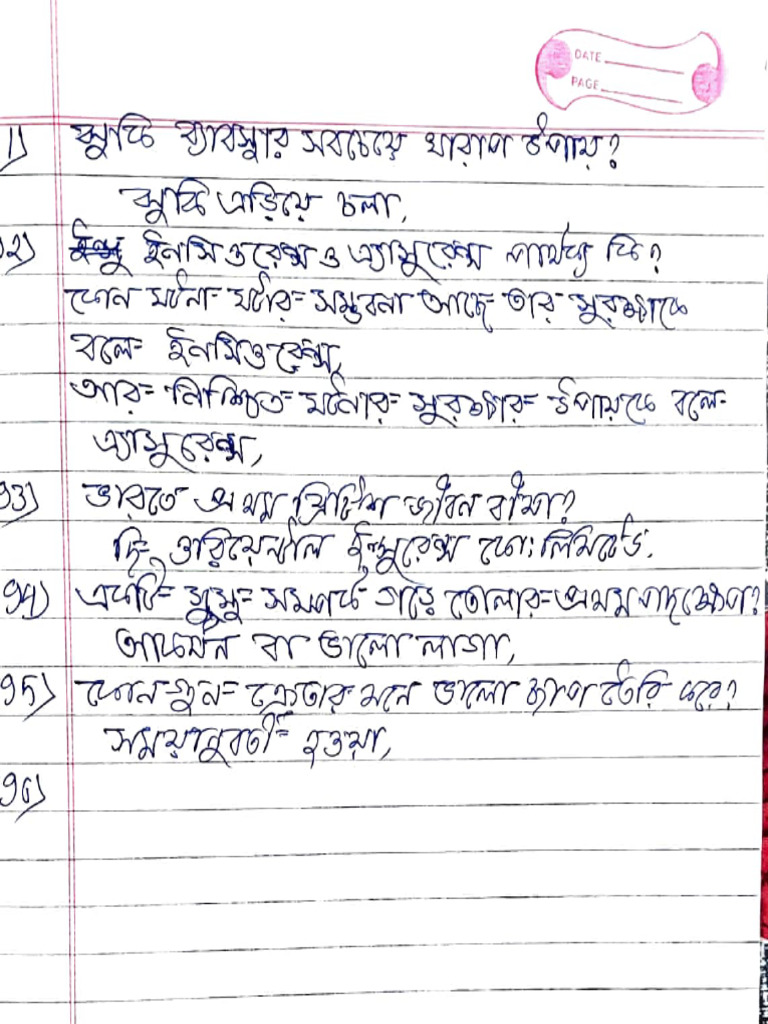 DATE
PAGE
1) ঝুকি ব্যাবস্থার সবচেয়ে খারাপ উপায়?
ঝুকি এড়িয়ে চলা,
২) ইনসিওরেন্স ও এ্যাসুরেন্স পার্থক্য কি?
কোন ঘটনা ঘটার সম্ভবনা আছে তার সুরক্ষাকে
বলে ইনসিওরেন্স,
আর নিশ্চিত ঘটনার সুরক্ষার উপায়কে বলে
এ্যাসুরেন্স,
93) ভারতে প্রথম ব্রিটিশ জীবন বীমা?
দি ওরিয়েন্টাল ইন্সুরেন্স কো: লিমিটেড.
94) একটি সুস্থ সম্পর্ক গড়ে তোলার প্রথম পদক্ষেপ?
আকর্ষন বা ভালো লাগা,
95) কোন গুন ক্রেতার মনে ভালো ছাপ তৈরি করে?
সময়ানুবর্তী হওয়া,
96)